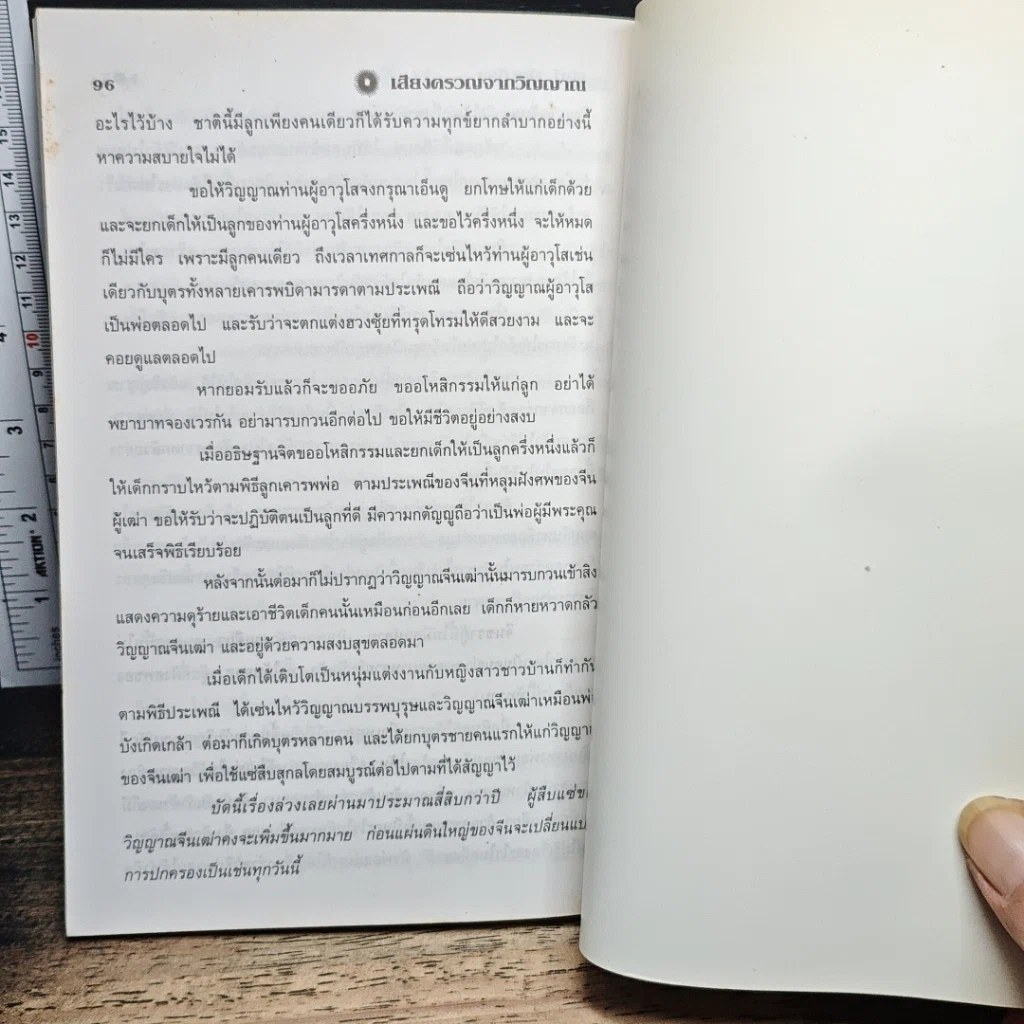 96
เสียงครวญจากวิญญาณ
อะไรไว้บ้าง ชาตินี้มีลูกเพียงคนเดียวก็ได้รับความทุกข์ยากลำบากอย่างนี้
หาความสบายใจไม่ได้
ขอให้วิญญาณท่านผู้อาวุโสจงกรุณาเอ็นดู ยกโทษให้แก่เด็กด้วย
และจะยกเด็กให้เป็นลูกของท่านผู้อาวุโสครึ่งหนึ่ง และขอไว้ครึ่งหนึ่ง จะให้หมด
ก็ไม่มีใคร เพราะมีลูกคนเดียว ถึงเวลาเทศกาลก็จะเซ่นไหว้ท่านผู้อาวุโสเช่น
เดียวกับบุตรทั้งหลายเคารพบิดามารดาตามประเพณี ถือว่าวิญญาณผู้อาวุโส
เป็นพ่อตลอดไป และรับว่าจะตกแต่งฮวงซุ้ยที่ทรุดโทรมให้ดีสวยงาม และจะ
คอยดูแลตลอดไป
หากยอมรับแล้วก็จะขออภัย ขออโหสิกรรมให้แก่ลูก อย่าได้
พยาบาทจองเวรกัน อย่ามารบกวนอีกต่อไป ขอให้มีชีวิตอยู่อย่างสงบ
เมื่ออธิษฐานจิตขออโหสิกรรมและยกเด็กให้เป็นลูกครึ่งหนึ่งแล้วก็
ให้เด็กกราบไหว้ตามพิธีลูกเคารพพ่อ ตามประเพณีของจีนที่หลุมฝังศพของจีน
ผู้เฒ่า ขอให้รับว่าจะปฏิบัติตนเป็นลูกที่ดี มีความกตัญญูถือว่าเป็นพ่อผู้มีพระคุณ
จนเสร็จพิธีเรียบร้อย
หลังจากนั้นต่อมาก็ไม่ปรากฏว่าวิญญาณจีนเฒ่านั้นมารบกวนเข้าสิง
แสดงความดุร้ายและเอาชีวิตเด็กคนนั้นเหมือนก่อนอีกเลย เด็กก็หายหวาดกลัว
วิญญาณจีนเฒ่า และอยู่ด้วยความสงบสุขตลอดมา
เมื่อเด็กได้เติบโตเป็นหนุ่มแต่งงานกับหญิงสาวชาวบ้านก็ทำกัน
ตามพิธีประเพณี ได้เซ่นไหว้วิญญาณบรรพบุรุษและวิญญาณจีนเฒ่าเหมือน
บังเกิดเกล้า ต่อมาก็เกิดบุตรหลายคน และได้ยกบุตรชายคนแรกให้แก่
ของจีนเฒ่า เพื่อใช้แซ่สืบสกุลโดยสมบูรณ์ต่อไปตามที่ได้สัญญาไว้
บัดนี้เรื่องล่วงเลยผ่านมาประมาณสี่สิบกว่าปี ผู้สืบแซ่
วิญญาณจีนเฒ่าคงจะเพิ่มขึ้นมากมาย ก่อนแผ่นดินใหญ่ของจีนจะ
การปกครองเป็นเช่นทุกวันนี้
1
2
3
4
7
8
9
10
11
12
13
14
15
AKTION
inches